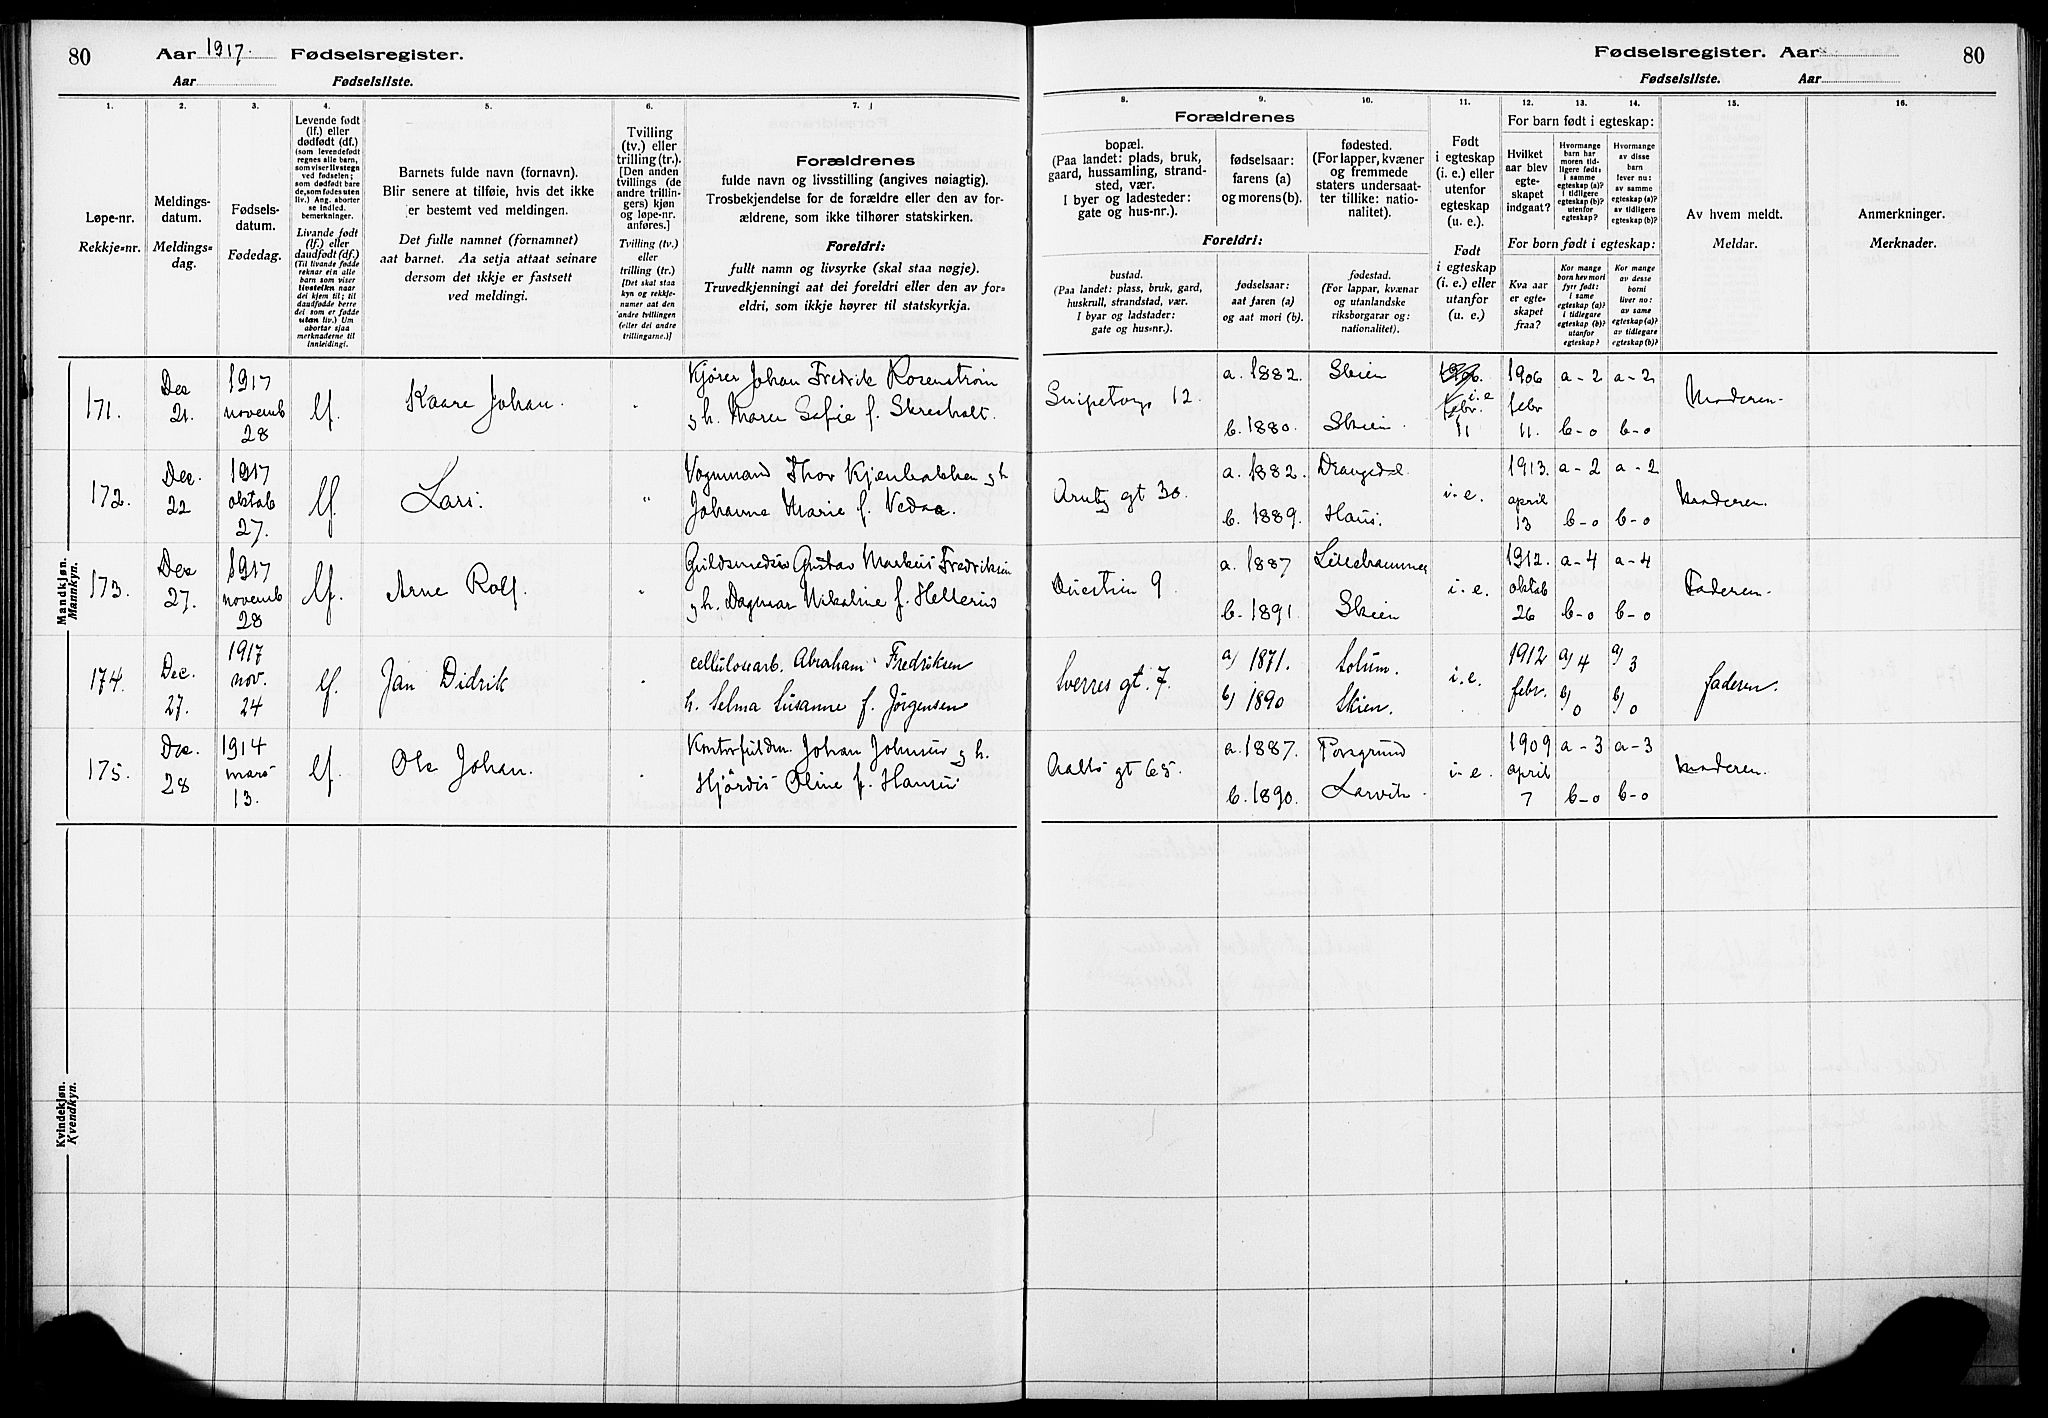 80 Aar 1917. Fødselsregister.
Aar Fødselsliste.
Fødselsregister. Aar 80
Fødselsliste. Aar
1.
Løpe-nr.
Rekkje-nr.
2.
Meldings-
datum.
Meldings-
dag.
3.
Fødsels-
datum.
Fødedag.
4.
Levende født
(lf.) eller
dødfødt (df.)
(som levendefødt
regnes alle barn,
som viser livstegn
ved fødselen;
som dødfødt bare
de, som fødes uten
liv.) Ang. aborter
se indled.
bemerkninger.
Livande født
(lf.) eller
daudfødt (df.)
(Til livande fødde
reknar ein alle
barn som viser
livsteikn naar
dei kjem til; til
daudfødde berre
dei som er fødde
utan liv.) Um
abortar sjaa
merknaderne til
innleidingi.
5.
Barnets fulde navn (fornavn).
Blir senere at tilføie, hvis det ikke
er bestemt ved meldingen.
Det fulle namnet (fornamnet)
aat barnet. Aa setja attaat seinare
dersom det ikkje er fastsett
ved meldingi.
6.
Tvilling
(tv.) eller
trilling (tr.).
[Den anden
tvillings (de
andre trillin-
gers) kjøn
og løpe-nr.
anføres.]
Tvilling (tv.)
eller
trilling (tr.)
[Det skal staa
kyn og rekkje-
numer aat den
andre tvillingen
(eller dei andre
trillingarne.)]
7.
Forældrenes
fulde navn og livsstilling (angives nøiagtig).
Trosbekjendelse for de forældre eller den av for-
ældrene, som ikke tilhører statskirken.
Foreldri:
fullt namn og livsyrke (skal staa nøgje).
Truvedkjenningi aat dei foreldri eller den av for-
eldri, som ikkje høyrer til statskyrkja.
8. 9. 10.
Forældrenes
bopæl.
(Paa landet: plads, bruk,
gaard, hussamling, strand-
sted, vær.
I byer og ladesteder:
gate og hus-nr.).
fødselsaar:
farens (a)
og morens (b).
fødested.
(For lapper, kvæner
og fremmede
staters undersaat-
ter tillike: natio-
nalitet).
Foreldri:
bustad.
(Paa landet: plass, bruk, gard,
huskrull, strandstad, vær.
I byar og ladstader:
gate og hus-nr.).
fødselsaar:
aat faren (a)
og aat mori (b).
fødestad.
(For lappar, kvænar
og utanlandske
riksborgarar og:
nationalitet).
11.
Født
i egteskap
(i. e.) eller
utenfor
egteskap
(u. e.).
Født
i egteskap
(i. e.) eller
utanfor
(u. e.)
12. 13. 14.
For barn født i egteskap:
Hvilket
aar blev
egte-
skapet
indgaat?
Hvormange
barn har
moren tid-
ligere født:
i samme
egteskap (a)?
i tidligere
egteskap (b)?
utenfor
egteskap?
Hvormange
av disse
barn
lever nu:
av samme
egteskap (a)?
av tidligere
egteskap (b)?
For born født i egteskap:
Kva aar
er egte-
skapet
fraa?
Kor mange
born hev mori
fyrr født:
i same
egteskap (a)?
i tidlegare
egteskap (b)?
utanfor
egteskap?
Kor mange
av desse
borni
liver no:
av same
egteskap (a)?
av tidlegare
egteskap (b)?
15.
Av hvem meldt.
Meldar.
16.
Anmerkninger.
Merknader.
Mandkjøn.
Mannkyn.
171. Dec 21. 1917 novemb 28 lf. Kaare Johan. "
Kjører Johan Fredrik Rosenstrøm
g h. Maren Sofie f.
Snipetorp 12. a. 1882. Skien b. 1880. Skien. i. e 1906 febr 11. a-2 b-0 a-2 b-0 Moderen.
172. Dec. 22 1917 oktob 27. lf. Lars. "
Vognmand Thor Kjenbakken g h
Johanne Marie f. Vedaa.
gt 30. a. 1882. Drangedal b. 1889. Haus. i. e. 1913. april 13 a-2 b-0 a-2 b-0 Moderen.
173. Dec 27. 1917 novemb 28 lf. Arne Rolf. "
Guldsmedsv Gustav Markus Fredriksen
g h. Dagmar Nikoline f.
9 a. 1887 Lillehammer b. 1891. Skien i. e. 1912. oktob 26 a-4 b-0 a-4 b-0 Faderen.
174. Dec. 27. 1917 nov. 24 lf. Jan Didrik "
cellulosearb. Abraham Fredriksen
h. Selma Susanne f. Jørgensen
Sverres gt. 7. a) 1871. Solum. b) 1890 Skien. i. e. 1912 febr. a) 4 b) 0 a) 3 b) 0 faderen.
175. Dec. 28 1914 mars 13. lf. Ole Johan. "
Kontorfuldm. Johan Johnsen g h.
Hjørdis Oline f. Hansen
Aalls gt 65. a. 1887. Porsgrund b. 1890. Larvik. i. e. 1909 april 7 a-3 b-0 a-3 b-0 Moderen.
Kvindekjøn.
Kvendkyn.